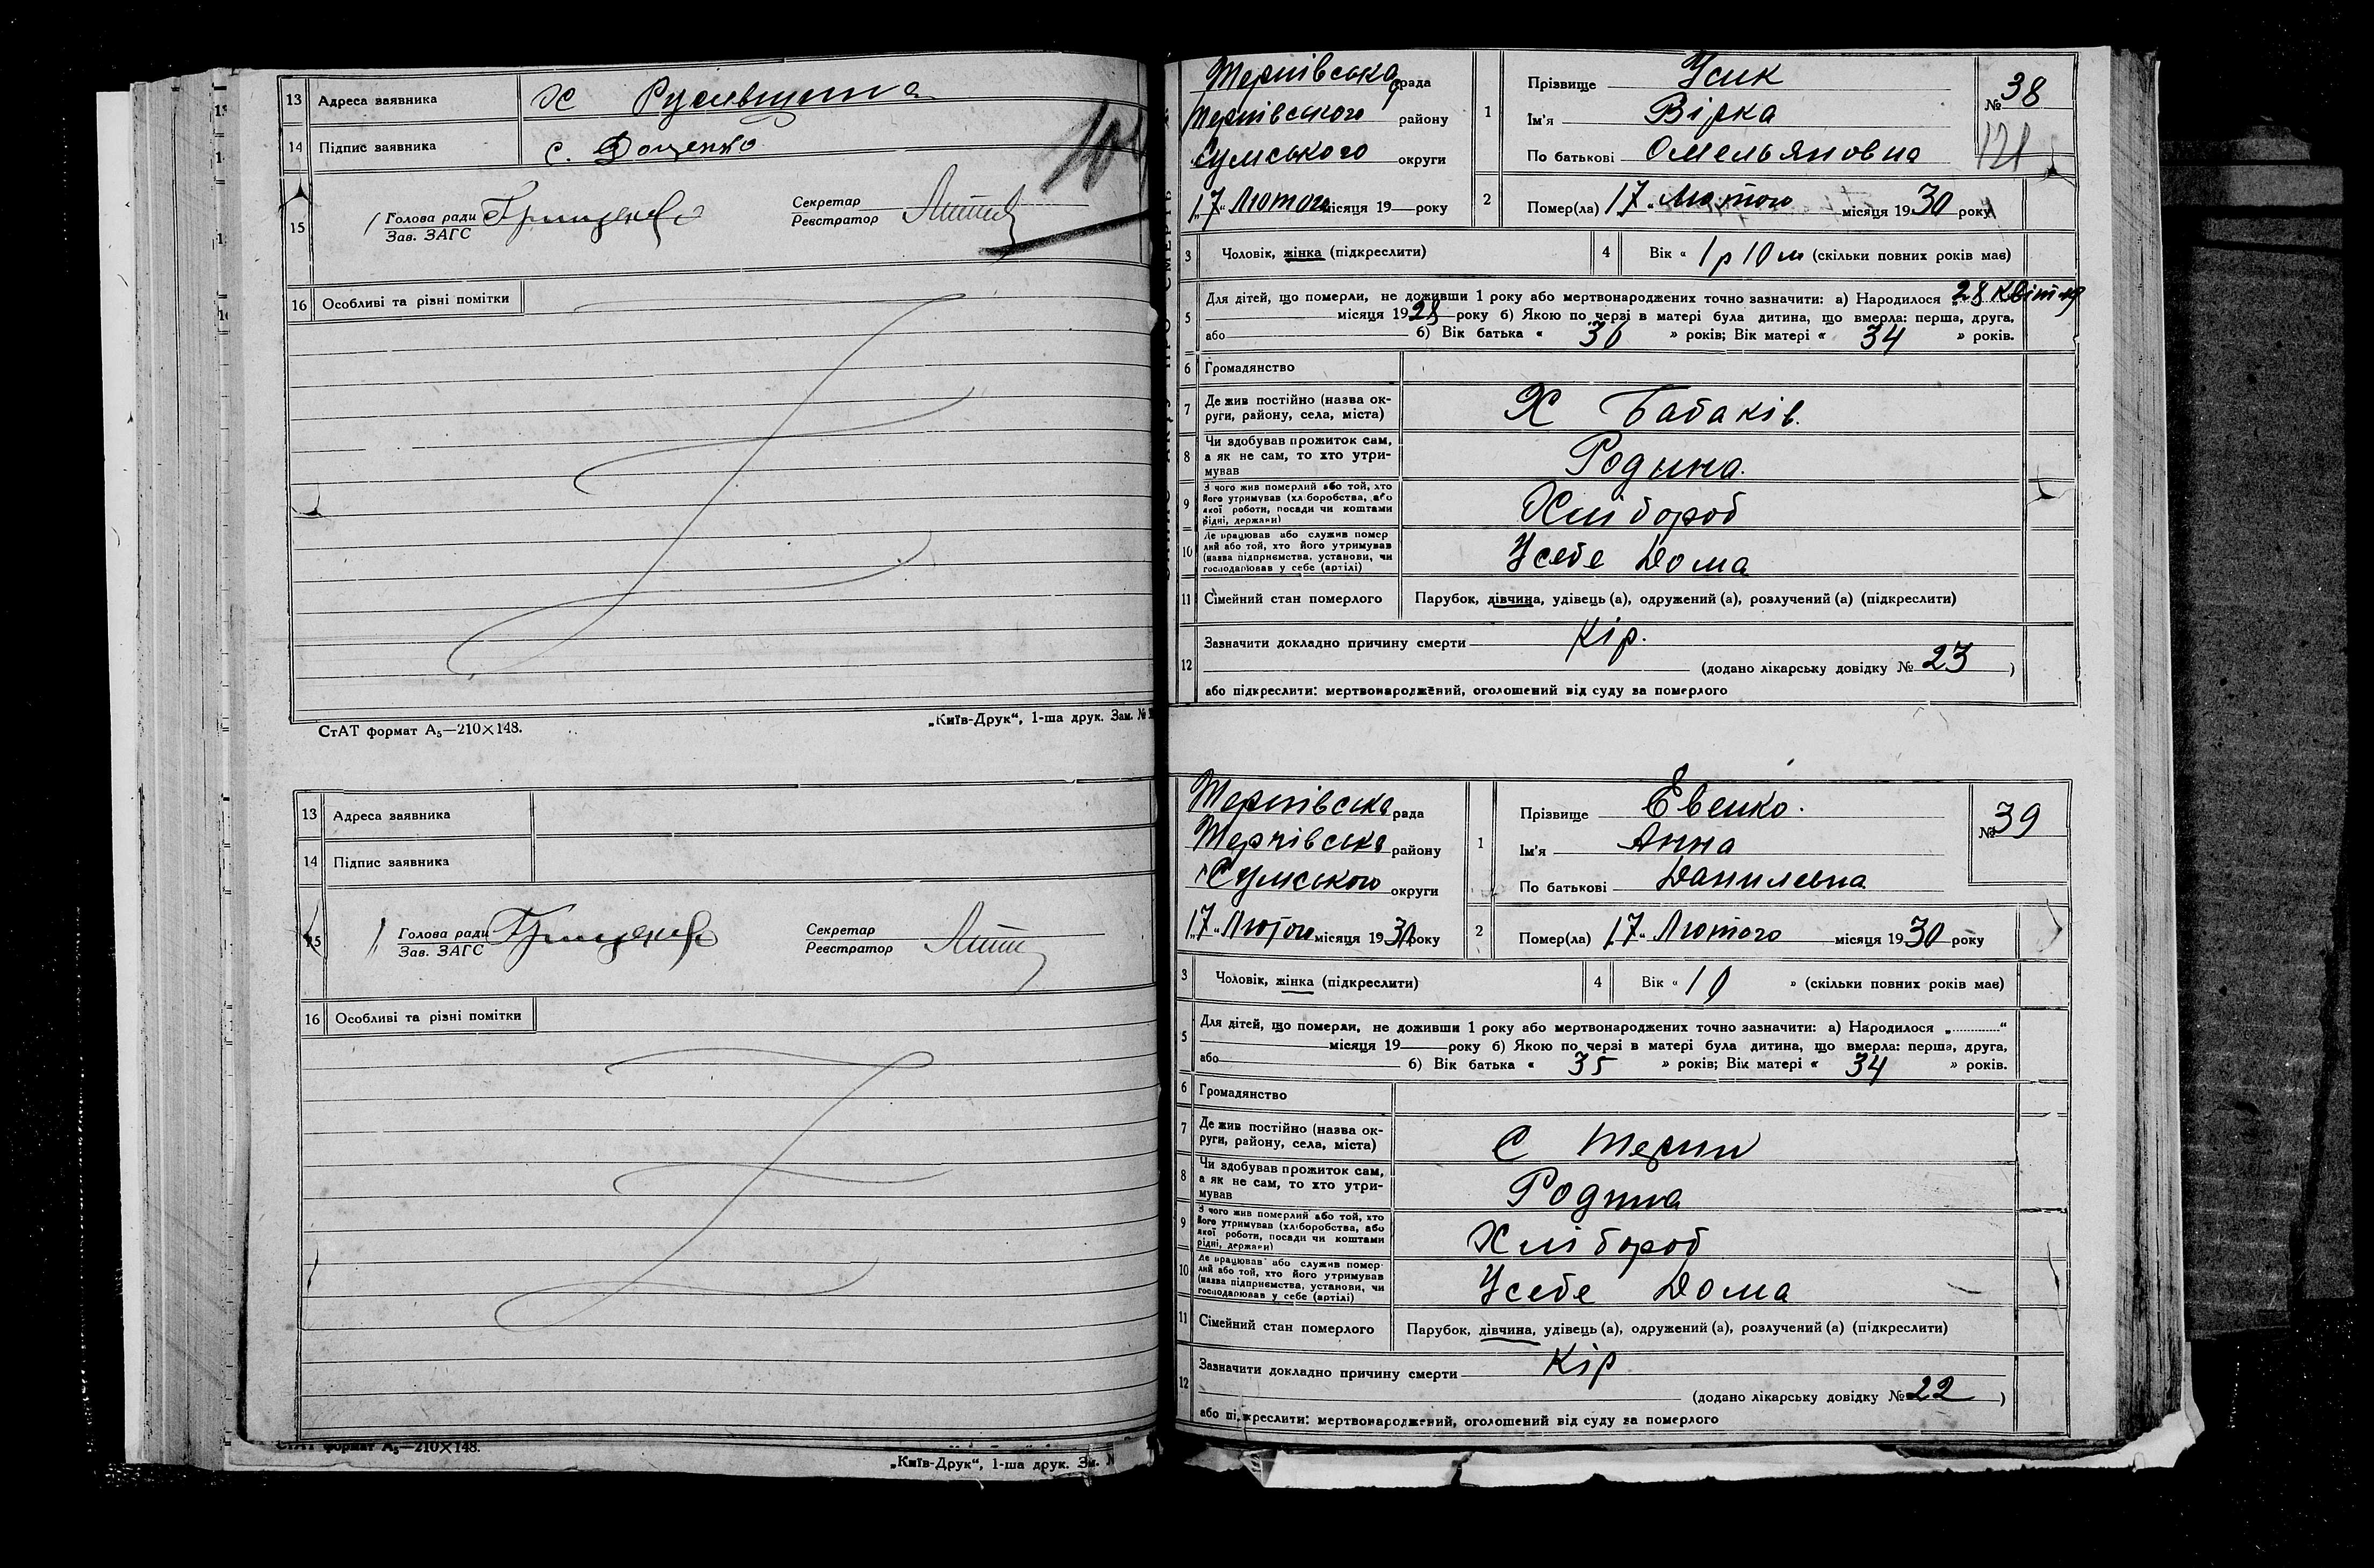 13 Адреса заявника Х Русивщина
14 Підпис заявника С. Доценко
15 Голова ради
Зав. ЗАГС
Секретар
Реєстратор
16 Особливі та різні помітки
СтАТ формат А₅—210×148.
„Київ-Друк“, 1-ша друк. Зам. №
13 Адреса заявника
14 Підпис заявника
15 Голова ради
Зав. ЗАГС
Секретар
Реєстратор
16 Особливі та різні помітки
СтАТ формат А₅—210×148.
„Київ-Друк“, 1-ша друк. Зам. №
Тернівська рада
Тернівського району
Сумського округи
„17“ Лютого місяця 19 року
1 Прізвище Усик
Ім'я Вірка
По батькові Омельяновна
№ 38
121
2 Помер(ла) 17 „ Лютого місяця 1930 року
3 Чоловік, жінка (підкреслити) 4 Вік « 1 р 10 м (скільки повних років має)
5 Для дітей, що померли, не доживши 1 року або мертвонароджених точно зазначити: а) Народилося „28 Квітня
місяця 1928 року б) Якою по черзі в матері була дитина, що вмерла: перша, друга,
або б) Вік батька « 36 » років; Вік матері « 34 » років.
6 Громадянство
7 Де жив постійно (назва ок-
руги, району, села, міста) Х Бабаків.
8 Чи здобував прожиток сам,
а як не сам, то хто утри-
мував Родина.
9 З чого жив померлий або той, хто
його утримував (хліборобства, або
якої роботи, посади чи коштами
рідні, держави) Хлібороб
10 Де працював або служив помер
лий або той, хто його утримував
(назва підприємства, установи, чи
господарював у себе (артілі) Усебе Дома
11 Сімейний стан померлого Парубок, дівчина, удівець (а), одружений (а), розлучений (а) (підкреслити)
12 Зазначити докладно причину смерти Кір.
(додано лікарську довідку № 23 )
або підкреслити: мертвонароджений, оголошений від суду за померлого
Тернівська рада
Тернівська району
Сумського округи
„17“ Лютого місяця 1930 року
1 Прізвище Евенко.
Ім'я Анна
По батькові Данилевна
№ 39
2 Помер(ла) „17“ Лютого місяця 1930 року
3 Чоловік, жінка (підкреслити) 4 Вік « 10 » (скільки повних років має)
5 Для дітей, що померли, не доживши 1 року або мертвонароджених точно зазначити: а) Народилося „ “
місяця 19 року б) Якою по черзі в матері була дитина, що вмерла: перша, друга,
або б) Вік батька « 35 » років; Вік матері « 34 » років.
6 Громадянство
7 Де жив постійно (назва ок-
руги, району, села, міста) С Терни
8 Чи здобував прожиток сам,
а як не сам, то хто утри-
мував Родина
9 З чого жив померлий або той, хто
його утримував (хліборобства, або
якої роботи, посади чи коштами
рідні, держави) Хлібороб
10 Де працював або служив помер-
лий або той, хто його утримував
(назва підприємства, установи, чи
господарював у себе (артілі) Усебе Дома
11 Сімейний стан померлого Парубок, дівчина, удівець (а), одружений (а), розлучений (а) (підкреслити)
12 Зазначити докладно причину смерти Кір
(додано лікарську довідку № 22 )
або підкреслити: мертвонароджений, оголошений від суду за померлого